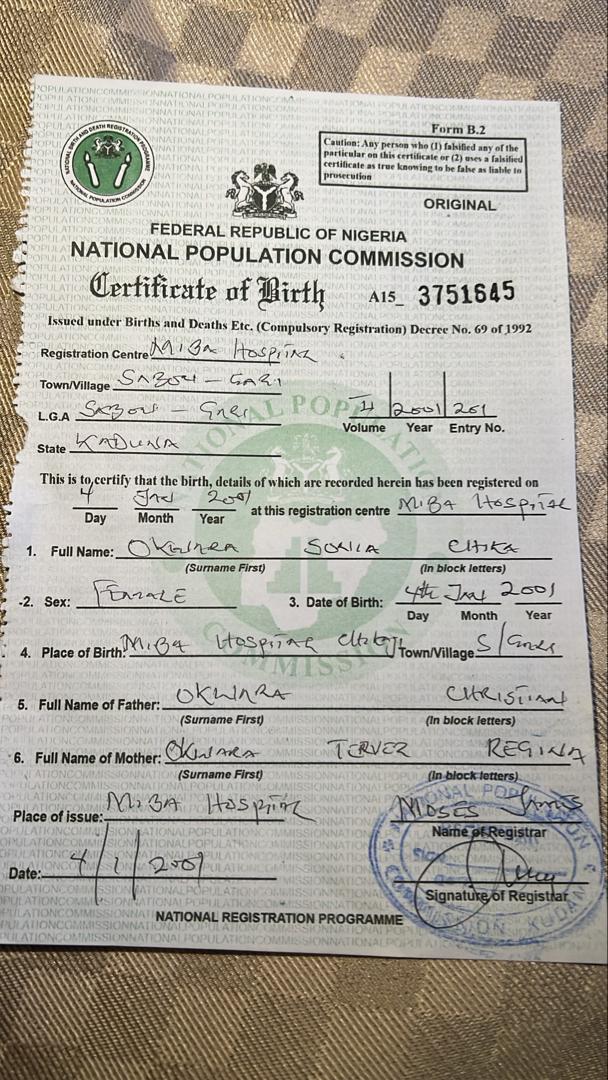 Form B.2
Caution: Any person who (1) falsified any of the
particular on this certificate or (2) uses a falsified
certificate as true knowing to be false as liable to
prosecution
ORIGINAL
NATIONAL BIRTH AND DEATH REGISTRATION PROGRAMME
NATIONAL POPULATION COMMISSION
FEDERAL REPUBLIC OF NIGERIA
NATIONAL POPULATION COMMISSION
Certificate of Birth A15_ 3751645
Issued under Births and Deaths Etc. (Compulsory Registration) Decree No. 69 of 1992
Registration Centre MIBA HOSPITAL
Town/Village SABOU - GARI
L.G.A SABOU - GARI
I 2001 201
Volume Year Entry No.
State KADUNA
This is to certify that the birth, details of which are recorded herein has been registered on
4 Jan 2001 at this registration centre MIBA HOSPITAL
Day Month Year
1. Full Name: OKWARA SONIA CHIKA
(Surname First) (In block letters)
2. Sex: FEMALE 3. Date of Birth: 4th Jan 2001
Day Month Year
4. Place of Birth: MIBA HOSPITAL Town/Village S/Gari
5. Full Name of Father: OKWARA CHRISTIAN
(Surname First) (In block letters)
6. Full Name of Mother: OKWARA TERVER REGINA
(Surname First) (In block letters)
Place of issue: MIBA HOSPITAL MOSES
Name of Registrar
Date: 4/1/2001
Signature of Registrar
NATIONAL REGISTRATION PROGRAMME
NATIONAL POPULATION COMMISSION KUDAN